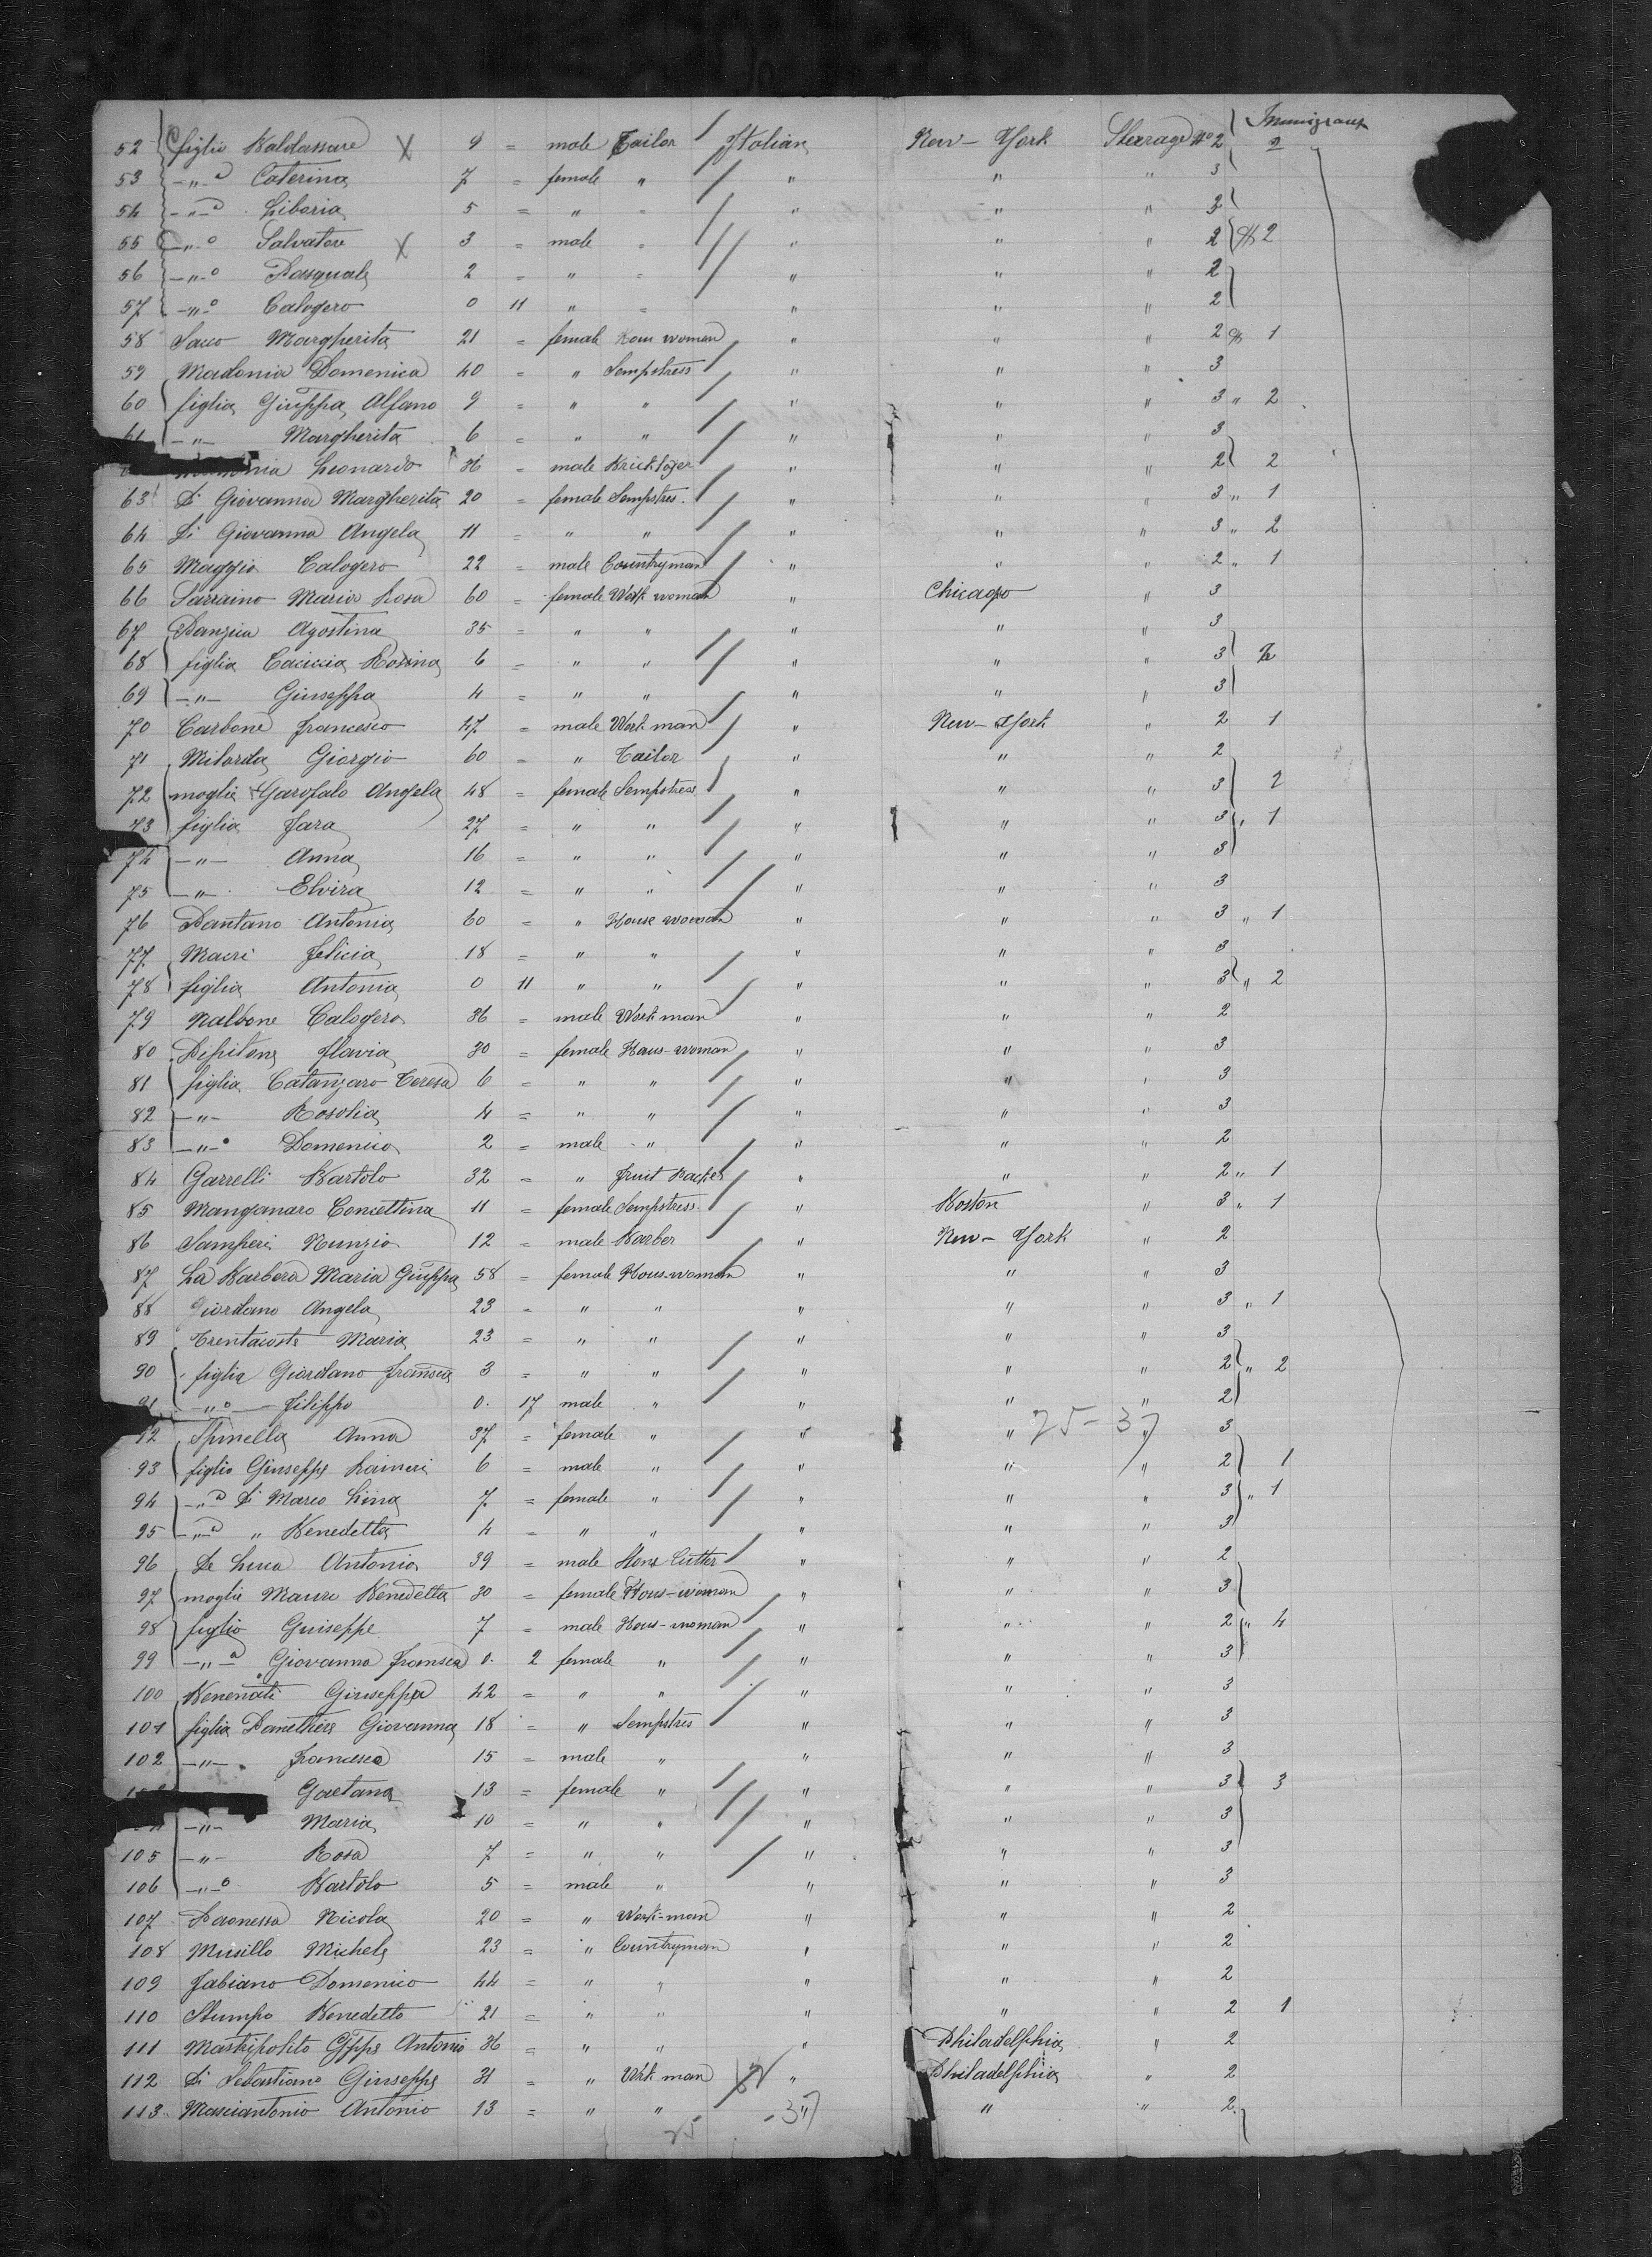 Immigrants
52 figlio Baldassare X 9 = male Tailor Italian New-York Steerage No 2 2
53 -"-a Caterina 7 = female " " " " 3
54 -"-a Liboria 5 = " = " " " 3
55 -"-o Salvatore X 3 = male = " " " 2 2
56 -"-o Pasquale 2 = " = " " " 2
57 -"-o Calogero 0 11 " = " " " 2
58 Sacco Margherita 21 = female Hous woman " " " 2 1
59 Madonia Domenica 40 = " Sempstress " " " 3
60 figlia Giuseppa Alfano 9 = " " " " " 3 " 2
61 -"- Margherita 6 = " " " " " 3
Leonardo 36 = male Bricklayer " " " 2 2
63 Di Giovanna Margherita 20 = female Sempstres. " " " 3 " 1
64 Di Giovanna Angela 11 = " " " " " 3 " 2
65 Maggio Calogero 22 = male Countryman " " " 2 " 1
66 Sarraino Maria Rosa 60 = female Work woman " Chicago " 3
67 Panzica Agostina 35 = " " " " " 3
68 figlia Caciccia Rosina 6 = " " " " " 3 2
69 -"- Giuseppa 4 = " " " " " 3
70 Carbone Francesco 47 = male Work man " New-York " 2 1
71 Milorda Giorgio 60 = " Tailor " " " 2
72 moglie Garofalo Angela 48 = female Sempstress " " " 3 2
73 figlia Sara 27 = " " " " " 3 " 1
74 -"- Anna 16 = " " " " " 3
75 -"- Elvira 12 = " " " " " 3
76 Pantano Antonia 60 = " House woman " " " 3 " 1
77 Macri Felicia 18 = " " " " " 3
78 figlia Antonia 0 11 " " " " " 3 " 2
79 Nalbone Calogero 36 = male Work man " " " 2
80 Pipitone Flavia 30 = female Hous-woman " " " 3
81 figlia Catanzaro Teresa 6 = " " " " " 3
82 -"- Rosolia 4 = " " " " " 3
83 -"-o Domenico 2 = male " " " " 2
84 Garrelli Bartolo 32 = " Fruit Packer " " " 2 " 1
85 Manganaro Concettina 11 = female Sempstress " Boston " 3 " 1
86 Samperi Nunzio 12 = male Barber " New-York " 2
87 La Barbera Maria Giuseppa 58 = female Hous-woman " " " 3
88 Giordano Angela 23 = " " " " " 3 " 1
89 Trentacoste Maria 23 = " " " " " 3
90 figlia Giordano Francesca 3 = " " " " " 2 " 2
91 -"-o Filippo 0 17 male " " " " 2
25-37
92 Spinella Anna 37 = female " " " " 3
93 figlio Giuseppe Raineri 6 = male " " " " 2 1
94 -"-a Di Marco Lina 7 = female " " " " 3 " 1
95 -"-a " Benedetta 4 = " " " " " 3
96 De Luca Antonio 39 = male Stone Cutter " " " 2
97 moglie Mauro Benedetta 30 = female Hous-woman " " " 3
98 figlio Guiseppe 7 = male Hous-woman " " " 2 " 4
99 -"-a Giovanna Francesca 0 2 female " " " " 3
100 Benenati Giuseppa 42 = " " " " " 3
101 figlia Panettiera Giovanna 18 = " Sempstres " " " 3
102 -"- Francesco 15 = male " " " " 3
Gaetana 13 = female " " " " 3 3
-"- Maria 10 = " " " " " 3
105 -"- Rosa 7 = " " " " " 3
106 -"-o Bartolo 5 = male " " " " 3
107 Paonessa Nicola 20 = " Work-man " " " 2
108 Musillo Michele 23 = " Countryman " " " 2
109 Fabiano Domenico 44 = " " " " " 2
110 Stumpo Benedetto 21 = " " " " " 2 1
111 Mastripolito Gppe Antonio 36 = " " " Philadelphia " 2
112 Di Sebastiano Giuseppe 31 = " Work man " Philadelphia " 2
113 Masciantonio Antonio 23 = " " " " " 2
25 - 37